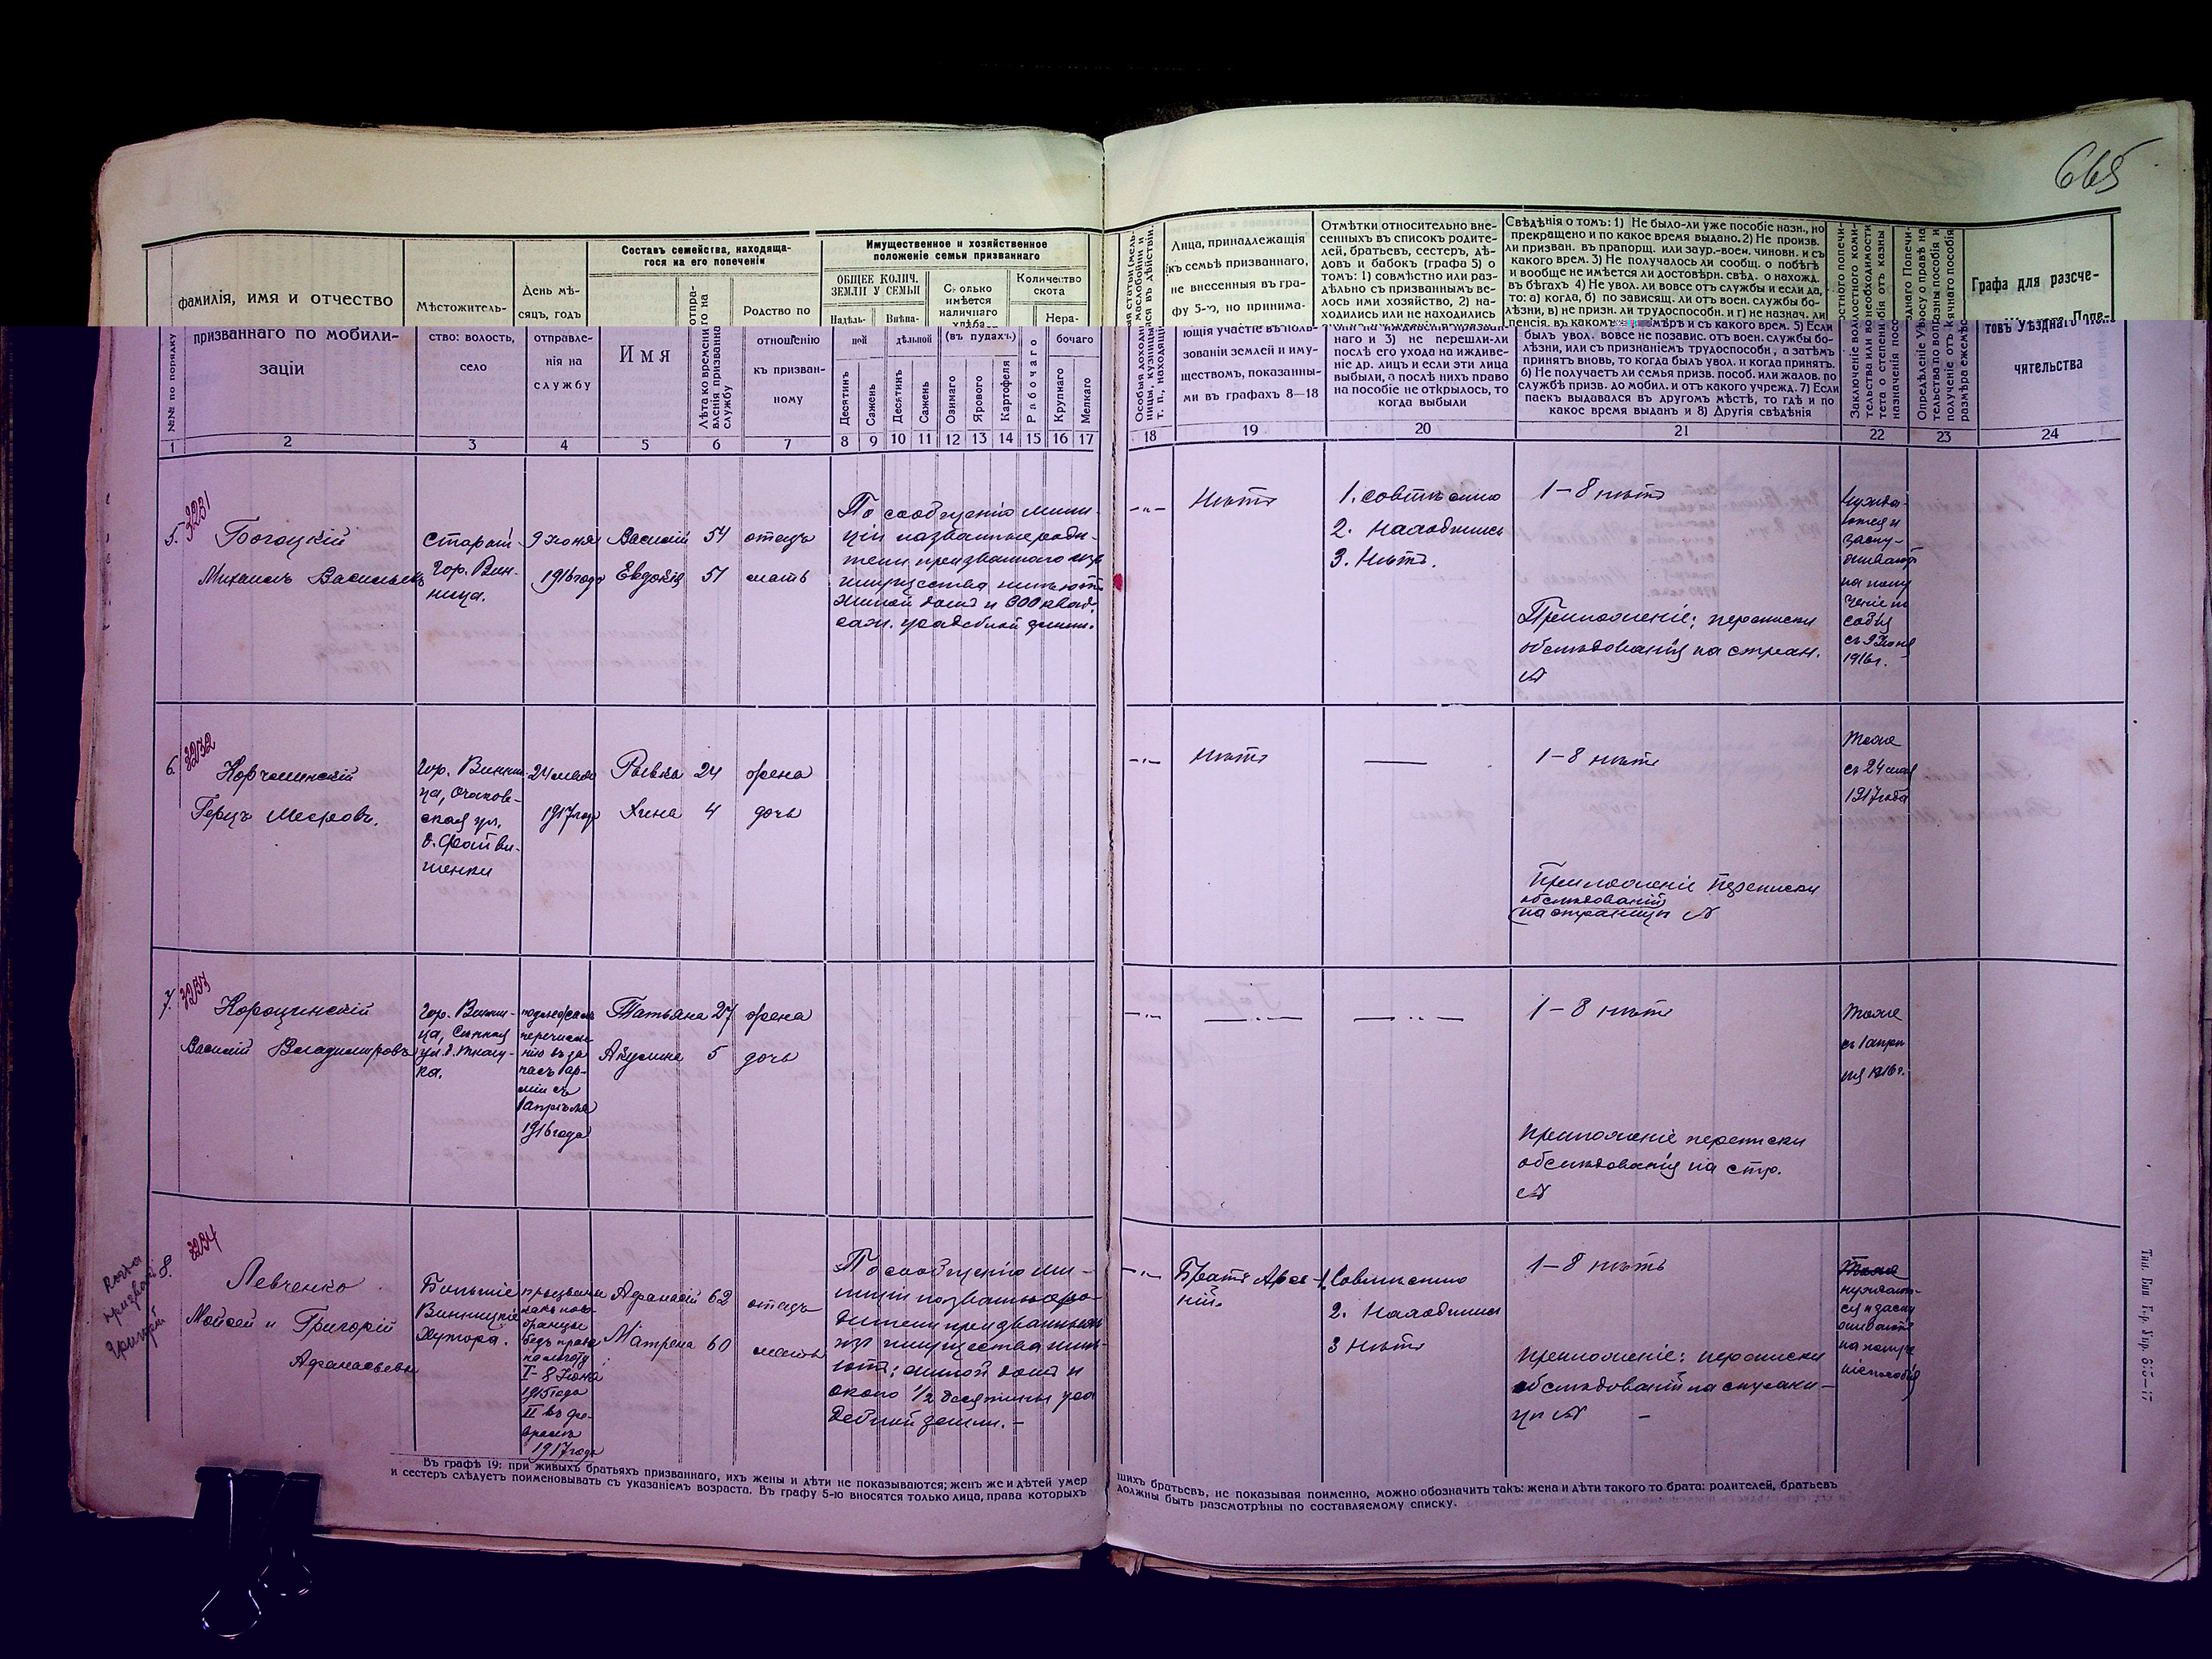 665
№№ по порядку
фамилія, имя и отчество
призваннаго по мобили-
заціи
Мѣстожитель-
ство: волость,
село
День мѣ-
сяцъ, годъ
отправле-
нія на
службу
Составъ семейства, находяща-
гося на его попеченіи
Имя
Лѣта ко времени отпра-
вленія призваннаго на
службу
Родство по
отношенію
къ призван-
ному
Имущественное и хозяйственное
положеніе семьи призваннаго
ОБЩЕЕ КОЛИЧ.
ЗЕМЛИ У СЕМЬИ
Надѣль-
ной
Внѣна-
дѣльной
Десятинъ
Сажень
Десятинъ
Сажень
Сколько
имѣется
наличнаго
хлѣба
(въ пудахъ.)
Озимаго
Яроваго
Картофеля
Количество
скота
Рабочаго
Нера-
бочаго
Крупнаго
Мелкаго
Лица, принадлежащія
къ семьѣ призваннаго,
не внесенныя въ гра-
фу 5-ю, но принима-
ющія участіе въ поль-
зованіи землей и иму-
ществомъ, показанны-
ми въ графахъ 8—18
Отмѣтки относительно вне-
сенныхъ въ списокъ родите-
лей, братьевъ, сестеръ, дѣ-
довъ и бабокъ (графа 5) о
томъ: 1) совмѣстно или раз-
дѣльно съ призваннымъ ве-
лось ими хозяйство, 2) на-
ходились или не находились
они на иждивеніи призван-
наго и 3) не перешли-ли
послѣ его ухода на иждиве-
ніе др. лицъ и если эти лица
выбыли, а послѣ нихъ право
на пособіе не открылось, то
когда выбыли
Свѣдѣнія о томъ: 1) Не было-ли уже пособіе назн., но
прекращено и по какое время выдано. 2) Не произв.
ли призван. въ прапорщ. или заур.-воен. чиновн. и съ
какого врем. 3) Не получалось ли сообщ. о побѣгѣ
и вообще не имѣется ли достовѣрн. свѣд. о нахожд.
въ бѣгахъ 4) Не увол. ли вовсе отъ службы и если да,
то: а) когда, б) по зависящ. ли отъ воен. службы бо-
лѣзни, в) не призн. ли трудоспособн. и г) не назнач. ли
пенсія, въ какомъ размѣрѣ и съ какого врем. 5) Если
былъ увол. вовсе не позавис. отъ воен. службы бо-
лѣзни, или съ признаніемъ трудоспособн., а затѣмъ
принятъ вновь, то когда былъ увол. и когда принятъ.
6) Не получаетъ ли семья призв. пособ. или жалов. по
службѣ призв. до мобил. и отъ какого учрежд. 7) Если
паекъ выдавался въ другомъ мѣстѣ, то гдѣ и по
какое время выданъ и 8) Другія свѣдѣнія
Графа для разсче-
товъ Уѣзднаго Попе-
чительства
1 2 3 4 5 6 7 8 9 10 11 12 13 14 15 16 17 18 19 20 21 22 23 24
3231
5. Богоцкій
Михаилъ Васильевъ
Старый-
гор. Вин-
ница.
9 Іюня
1916 года
Василій 54 отецъ
Евдокія 51 мать
По сообщенію мили-
ціи названные роди-
тели призваннаго изъ
имущества имѣютъ
жилой домъ и 300 квад.
саж. усадебной земли.
Нѣтъ
1. совмѣстно
2. Находились
3. Нѣтъ.
1—8 нѣтъ
Приложеніе: переписки
обслѣдованія на стран.
№
Нужда-
ются и
заслу-
живаютъ
на полу
ченіе по
собія
съ 9 Іюня
1916 г.
3232
6.
Герцъ Меировъ.
Гор. Винни-
ца, Очаков-
ская ул.
24 мая
1917 года
Рывка 24 жена
Хина 4 дочь
нѣтъ
1—8 нѣтъ
Приложеніе переписки
обслѣдованій
на страницѣ №
Тоже
съ 24 мая
1917 года
3233
7.
Василій Владиміровъ
Гор. Винни-
ца,
перечисле-
нію въ за-
пасъ ар-
міи съ
1 апрѣля
1916 года
Татьяна 27 жена
Акулина 5 дочь
1—8 нѣтъ
Приложеніе переписки
обслѣдованія на стр.
№
Тоже
съ 1 апрѣ-
ля 1916 г.
3234
8. Левченко
Мойсей и Григорій
Афанасьевы
Большіе
Винницкіе
Хутора.
призваны
какъ ново-
бранцы
безъ права
на льготу
I- 8 Іюня
1915 года
II въ фе-
вралѣ
1917 года
Афанасій 62 отецъ
Матрена 60 мать
По сообщенію ми-
лиціи названные ро-
дители призванныхъ
изъ имущества имѣ-
ютъ: жилой домъ и
около 1/2 десятины уса
дебной земли.—
Братъ Арсе-
ній.
1. Совмѣстно
2. Находились
3 Нѣтъ
1—8 нѣтъ
Приложеніе: переписки
обслѣдованій на страни-
цѣ № —
Тоже
нуждают-
ся и заслу
живаютъ
на получе
ніе пособія
Когда
призванъ
Григорій
Въ графѣ 19: при живыхъ братьяхъ призваннаго, ихъ жены и дѣти не показываются; женъ же и дѣтей умер
шихъ братьевъ, не показывая поименно, можно обозначить такъ: жена и дѣти такого то брата: родителей, братьевъ
и сестеръ слѣдуетъ поименовывать съ указаніемъ возраста. Въ графу 5-ю вносятся только лица, права которыхъ
должны быть разсмотрѣны по составляемому списку.